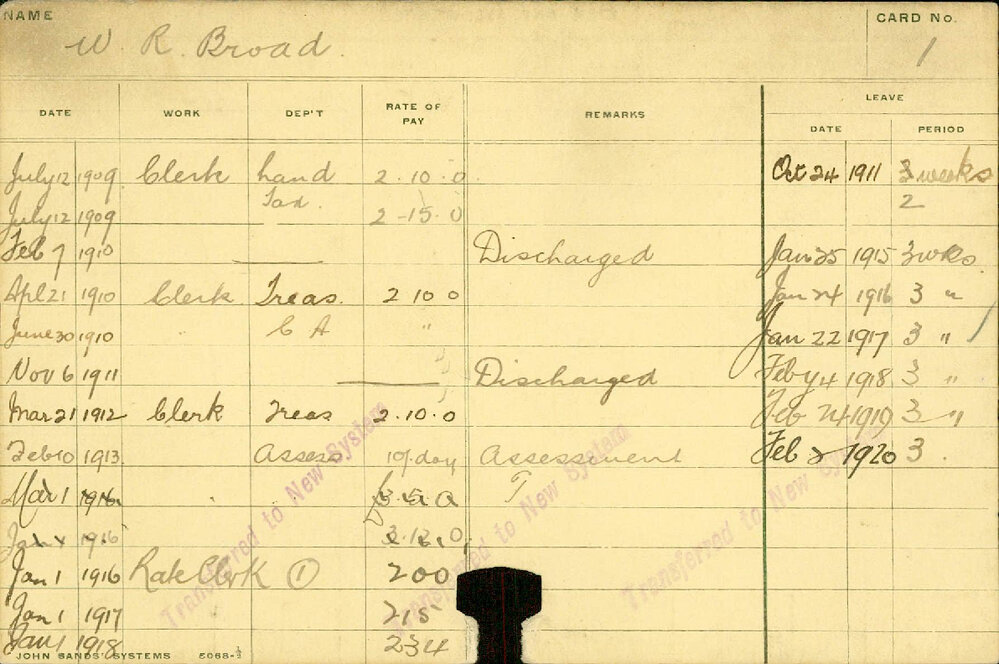 NAME W. R. Broad. CARD No. 1
LEAVE
DATE WORK DEP'T RATE OF PAY REMARKS DATE PERIOD
July 12 1909 Clerk Land 2. 10. 0. Oct 24 1911 3 weeks
July 12 1909 Tax. 2 - 15. 0 2
Feb 7 1910 Discharged Jan 25 1915 3 wks.
Apl 21 1910 Clerk Treas. 2 10 0 Jan 24 1916 3 "
June 30 1910 " C A " Jan 22 1917 3 "
Nov 6 1911 Discharged Feby 4 1918 3 "
Mar 21 1912 Clerk Treas 2. 10. 0 Feb 24 1919 3 "
Feb 10 1913 Assess 10/. day Assessment Feb 2 1920 3.
Mar 1
Jan 1916 3. 12. 0
Jan 1 1916 Rate Clerk (1) 200
Jan 1 1917 215
Jan 1 1918 234
Transferred to New System
Transferred to New System
Transferred to New System
JOHN SANDS' SYSTEMS 5068-½